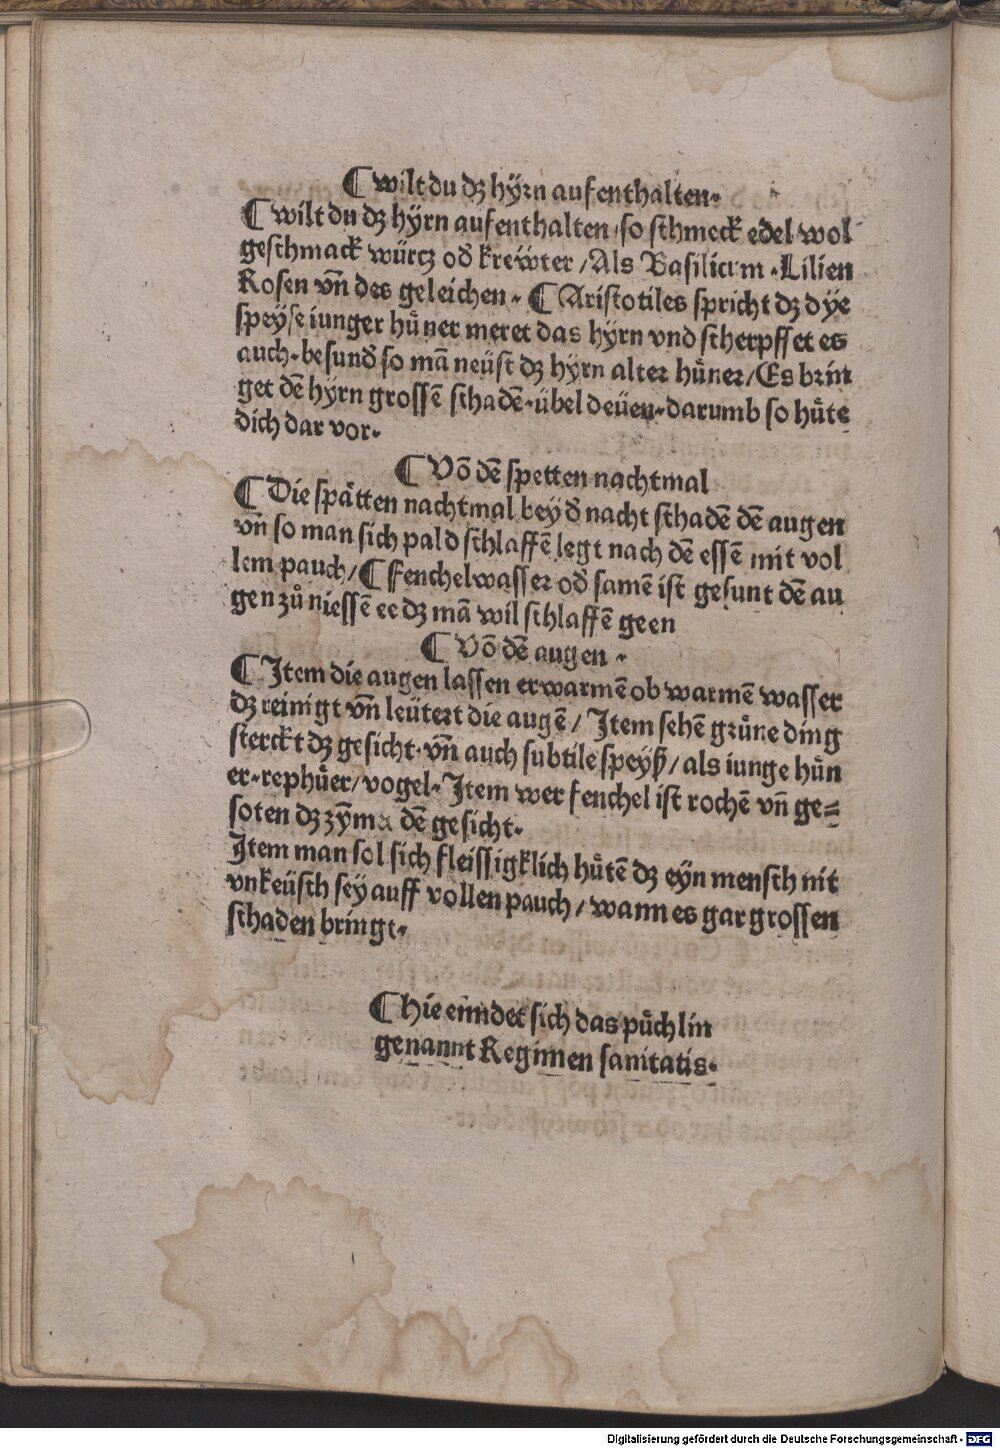 ¶ wilt du dz hÿrn aufenthalten.
¶ wilt du dz hÿrn aufenthalten so schmeck edel wol
geschmack würcz od̕ krewter / Als Basilicum . Lilien
Rosen vn̄ des geleichen . ¶ Aristotiles spricht dz dÿe
speÿse iunger hůner meret das hÿrn vnd scherpffet es
auch . besund̕ so mā neüst dz hÿrn alter hůner / Es brin
get dē hÿrn grossē schadē . übel deüen . darumb so hůte
dich dar vor .
¶ Vō dē spetten nachtmal
¶ Die spåtten nachtmal beÿd̕ nacht schadē dē augen
vn̄ so man sich pald schlaffē legt nach dē essē mit vol
lem pauch / ¶ fenchelwasser od̕ samē ist gesunt dē au
gen zů niessē ee dz mā wil schlaffē geen
¶ Vō dē augen .
¶ Item die augen lassen erwarmē ob warmē wasser
dz reinigt vn̄ leütert die augē / Item sehē grůne ding
sterckt dz gesicht . vn̄ auch subtile speÿß / als iunge hůn
er . rephůer / vogel . Item wer fenchel ist rochē vn̄ ge=
soten dz zÿmx dē gesicht .
Item man sol sich fleissigklich hůtē dz eÿn mensch nit
vnkeüsch seÿ auff vollen pauch / wann es gar grossen
schaden bringt .
¶ hie enndet sich das půchlin
genannt Regimen sanitatis .
Digitalisierung gefördert durch die Deutsche Forschungsgemeinschaft - DFG